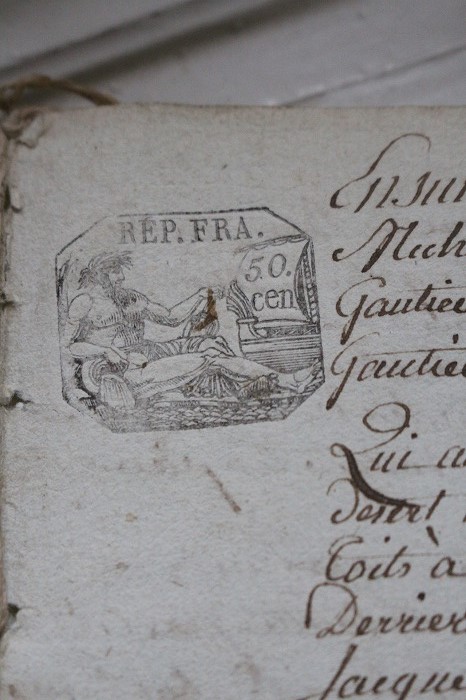 REP. FRA.
50.
cen
Ensui
Mich
Gautie
Gautie
Qui au
Desert
Toits à
Derrier
Jacque